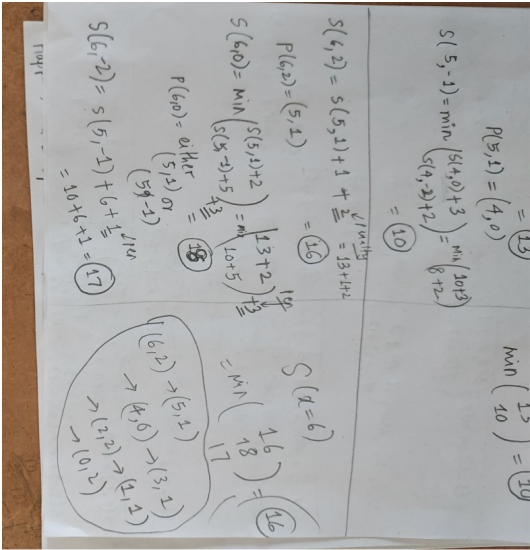 = 13
P(5,1) = (4,0)
S(5,-1) = min ( S(4,0)+3
S(4,-2)+2 ) = min ( 10+3
8+2 )
= 10
min ( 13
10 ) = 10
S(6,2) = S(5,1) + 1 + 2 = 13+1+2
= 16
P(6,2) = (5,1)
S(6,0) = min ( S(5,1)+2
S(5,-1)+5 ) +3 = min ( 13+2
10+5 ) +3
= 18
P(6,0) = either
(5,1) or
(5,-1)
S(6,-2) = S(5,-1) + 6 + 1
= 10+6+1 = 17
S(x=6)
= min ( 16
18
17 ) = 16
(6,2) → (5,1)
→ (4,0) → (3,1)
→ (2,2) → (1,1)
→ (0,2)